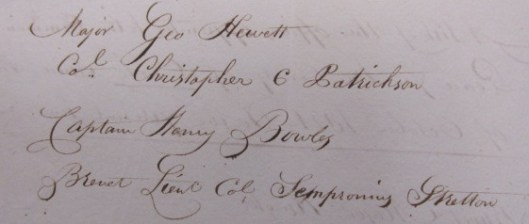 Major Geo Hewett
Col. Christopher C Patrickson
Captain Henry Bowles
Brevet Lieut Col. Sempronius Stretton